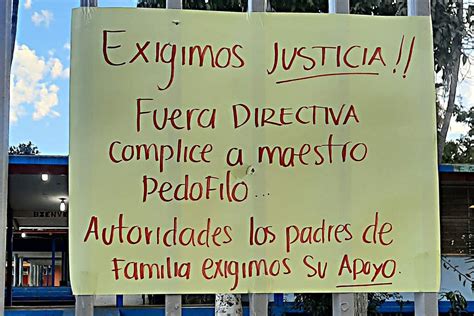 Exigimos JUSTICIA!!
Fuera DIRECTIVA
complice a maestro
PedoFilo...
Autoridades los padres de
Familia exigimos Su Apoyo.
BIENVE